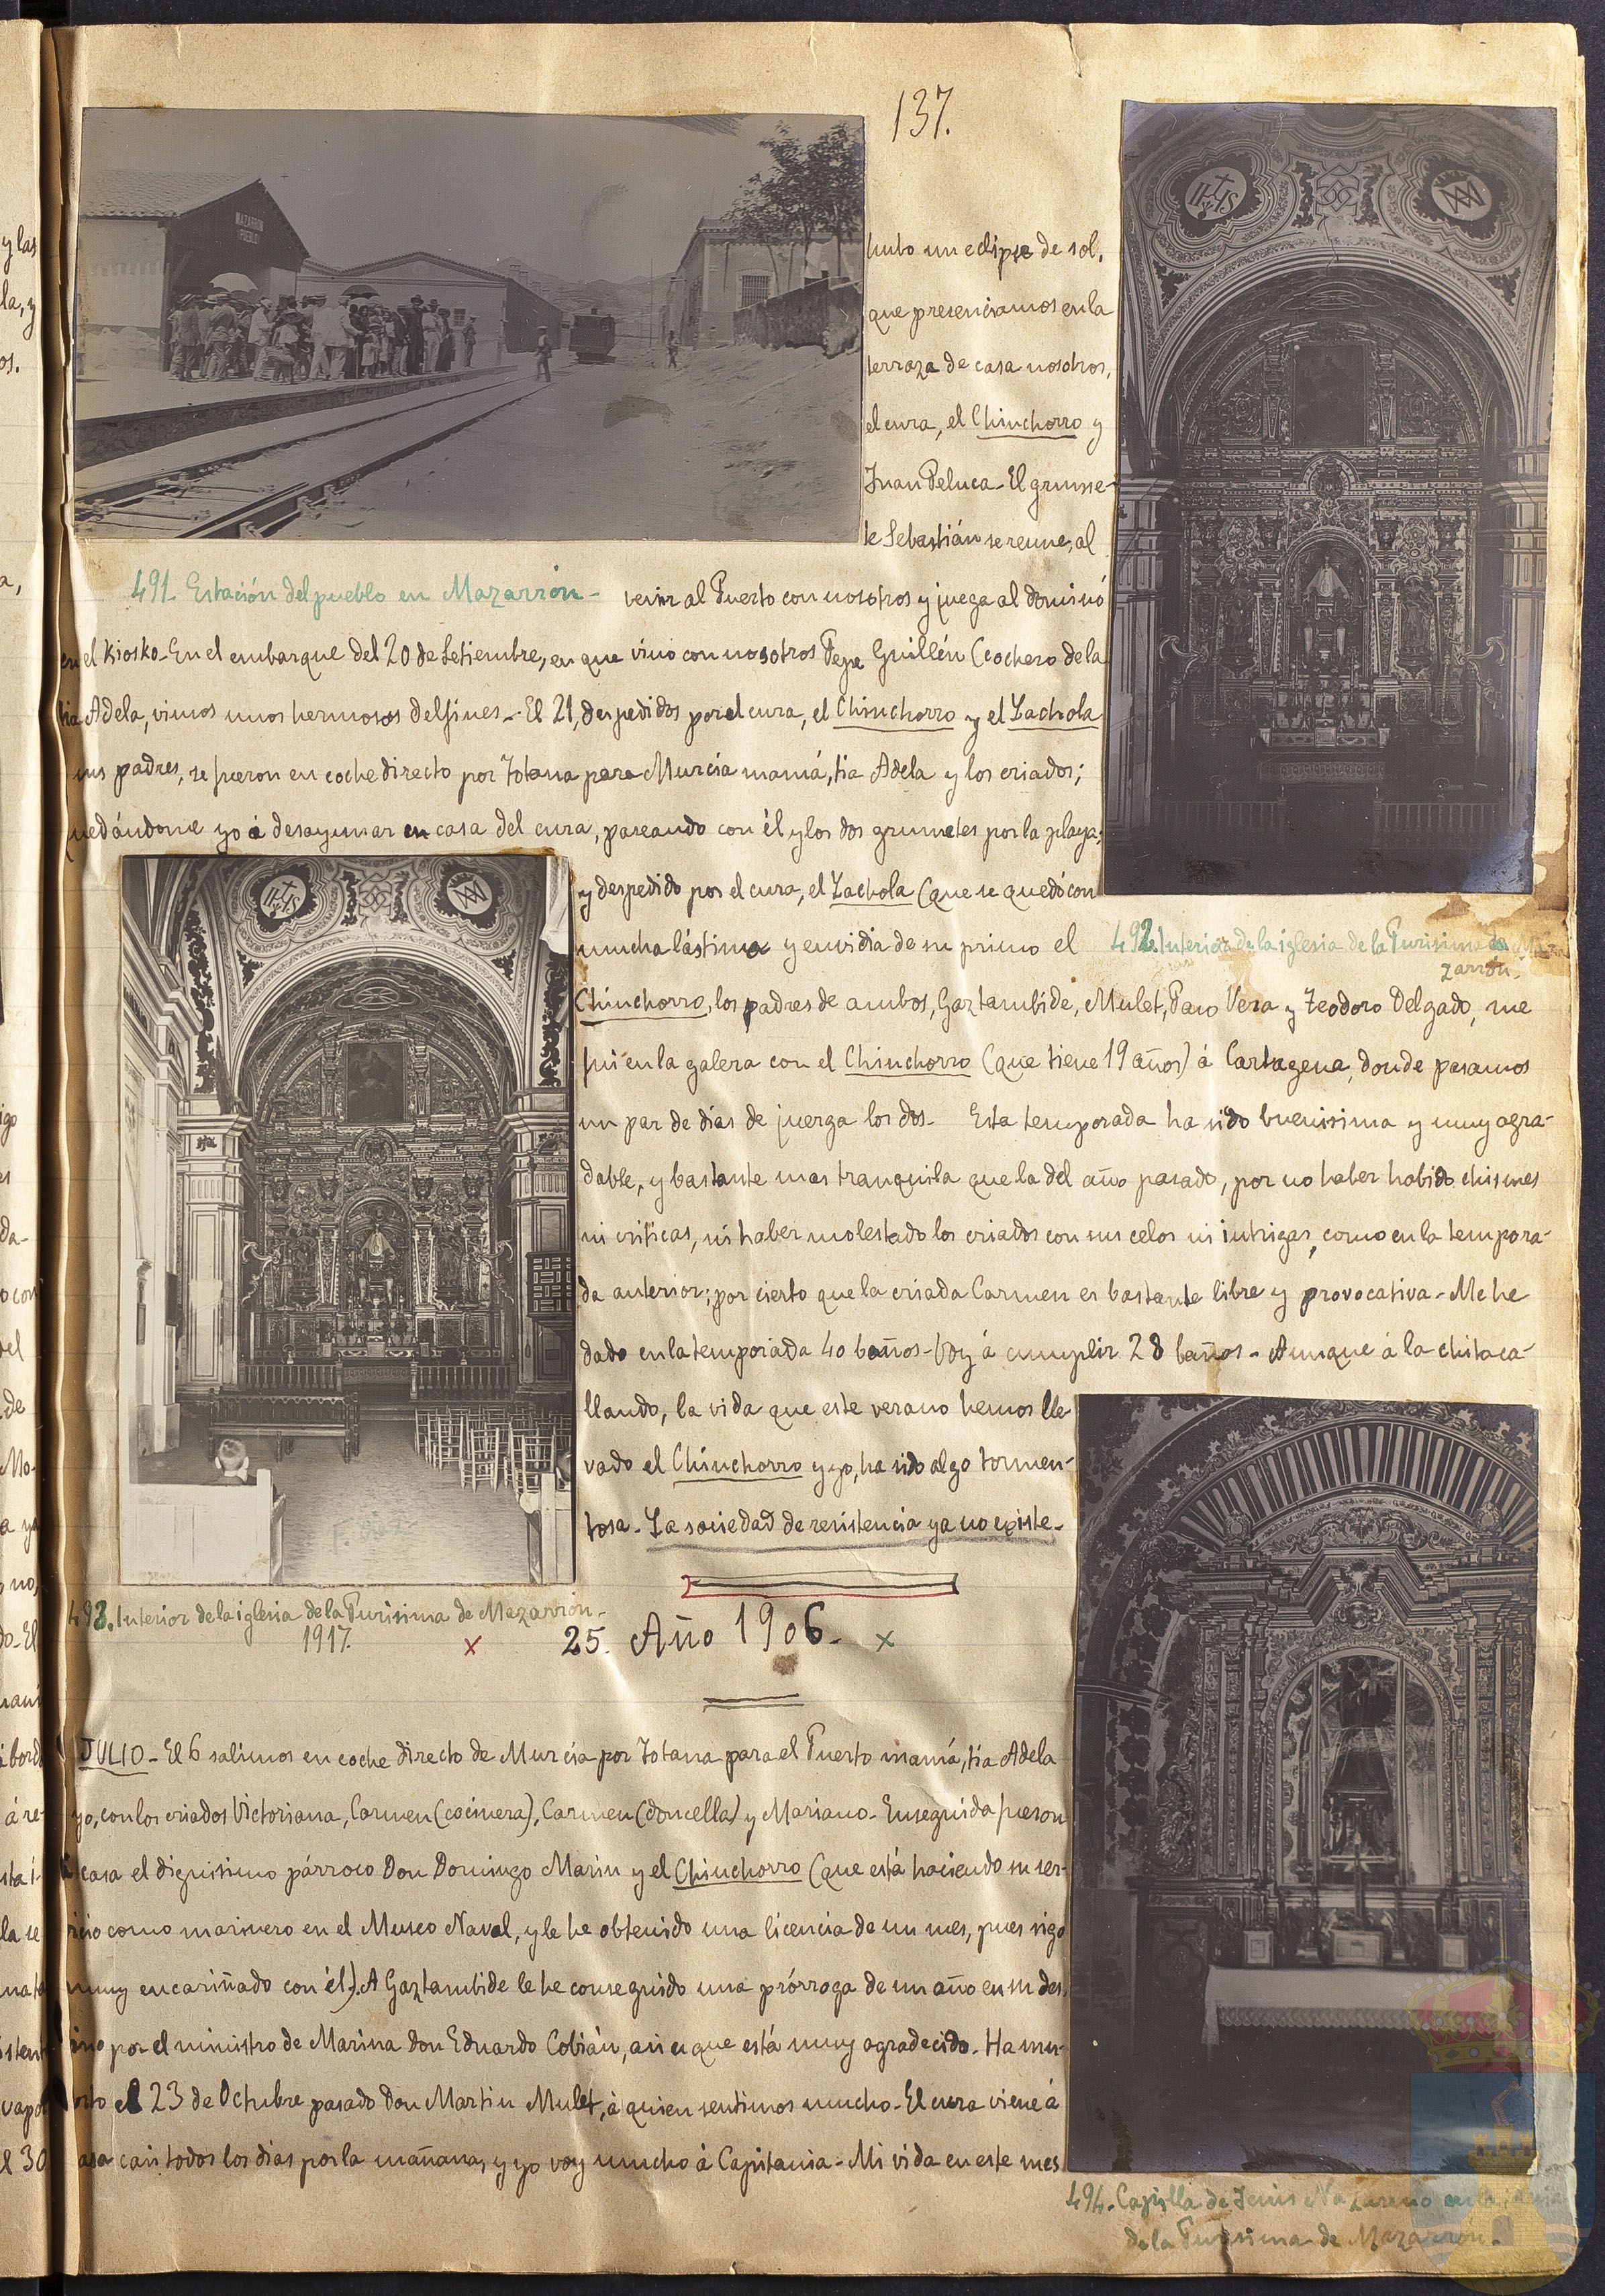 137.
MAZARRON
PUEBLO
hubo un eclipse de sol,
que presenciamos en la
terraza de casa nosotros,
el cura, el Chinchorro y
Juan Peluca - El grume-
te Sebastián se reune, al
491. Estación del pueblo en Mazarrón -
venir al Puerto con nosotros y juega al dominó
en el Kiosko - En el embarque del 20 de Setiembre, en que vino con nosotros Pepe Guillén (cochero de la
tia Adela, vimos unos hermosos delfines - El 21, despedidos por el cura, el Chinchorro y el Lachola
sus padres, se fueron en coche directo por Totana para Murcia mamá, tia Adela y los criados;
quedándome yo á desayunar en casa del cura, paseando con él y los dos grumetes por la playa;
y despedido por el cura, el Lachola (que se quedó con
mucha lástima y envidia de su primo el
492. Interior de la iglesia de la Purisima de Ma-
zarrón.
Chinchorro, los padres de ambos, Gaztambide, Mulet, Paco Vera y Teodoro Delgado, me
fuí en la galera con el Chinchorro (que tiene 19 años) á Cartagena, donde pasamos
un par de días de juerga los dos - Esta temporada ha sido buenisima y muy agra-
dable, y bastante mas tranquila que la del año pasado, por no haber habido chismes
ni criticas, ni haber molestado los criados con sus celos ni intrigas, como en la tempora-
da anterior; por cierto que la criada Carmen es bastante libre y provocativa - Me he
dado en la temporada 40 baños - Voy á cumplir 28 baños - Aunque á la chitaca-
llando, la vida que este verano hemos lle-
vado el Chinchorro y yo, ha sido algo tormen-
tosa - La sociedad de resistencia ya no existe -
493. Interior de la iglesia de la Purisima de Mazarrón -
1917.
25. Año 1906.
JULIO - El 6 salimos en coche directo de Murcia por Totana para el Puerto mamá, tia Adela
yo, con los criados Victoriana, Carmen (cocinera), Carmen (doncella) y Mariano - Enseguida fueron
á casa el dignisimo párroco Don Domingo Marin y el Chinchorro (que está haciendo su ser-
vicio como marinero en el Museo Naval, y le he obtenido una licencia de un mes, pues sigo
muy encariñado con él). A Gaztambide le he conseguido una prórroga de un año en su des-
tino por el ministro de Marina don Eduardo Cobián, asi es que está muy agradecido - Ha mu-
erto el 23 de Octubre pasado Don Martin Mulet, á quien sentimos mucho - El cura viene á
casa casi todos los dias por la mañana, y yo voy mucho á Capitania - Mi vida en este mes
494. Capilla de Jesús Nazareno en la iglesia
de la Purisima de Mazarrón -